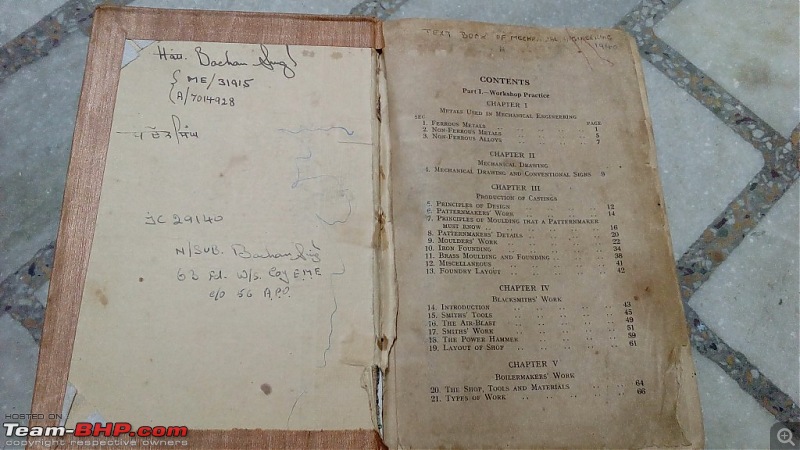 Hav. Bachan Singh
ME/31915
A/7014928
JC 29140
N/SUB. Bachan Singh
W/S. Coy E.M.E
c/o 56 A.P.O.
TEXT BOOK OF MECHANICAL ENGINEERING
CONTENTS
Part I.—Workshop Practice
CHAPTER I
Metals Used in Mechanical Engineering
SEC. PAGE
1. Ferrous Metals .. .. .. .. .. 1
2. Non-Ferrous Metals .. .. .. .. 5
3. Non-Ferrous Alloys .. .. .. .. 7
CHAPTER II
Mechanical Drawing
4. Mechanical Drawing and Conventional Signs 9
CHAPTER III
Production of Castings
5. Principles of Design .. .. .. .. 12
6. Patternmakers' Work .. .. .. .. 14
7. Principles of Moulding that a Patternmaker
must know .. .. .. .. .. 16
8. Patternmakers' Details .. .. .. .. 20
9. Moulders' Work .. .. .. .. 22
10. Iron Founding .. .. .. .. 34
11. Brass Moulding and Founding .. .. .. 38
12. Miscellaneous .. .. .. .. 41
13. Foundry Layout .. .. .. .. 42
CHAPTER IV
Blacksmiths' Work
14. Introduction .. .. .. .. 43
15. Smiths' Tools .. .. .. .. 45
16. The Air-Blast .. .. .. .. 49
17. Smiths' Work .. .. .. .. 51
18. The Power Hammer .. .. .. .. 59
19. Layout of Shop .. .. .. .. 61
CHAPTER V
Boilermakers' Work
20. The Shop, Tools and Materials .. .. .. 64
21. Types of Work .. .. .. .. 66
HOSTED ON
Team-BHP.com
copyright respective owners